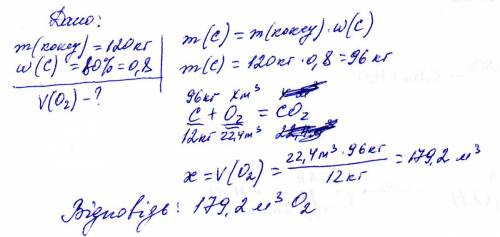 Дано:
m(коксу) = 120 кг
w(C) = 80% = 0,8
V(O₂) - ?
m(C) = m(коксу) · w(C)
m(C) = 120кг · 0,8 = 96 кг
96кг x м³
C + O₂ = CO₂
12кг 22,4м³
x = V(O₂) = 22,4м³ · 96 кг / 12 кг = 179,2 м³
Відповідь: 179,2 м³ O₂